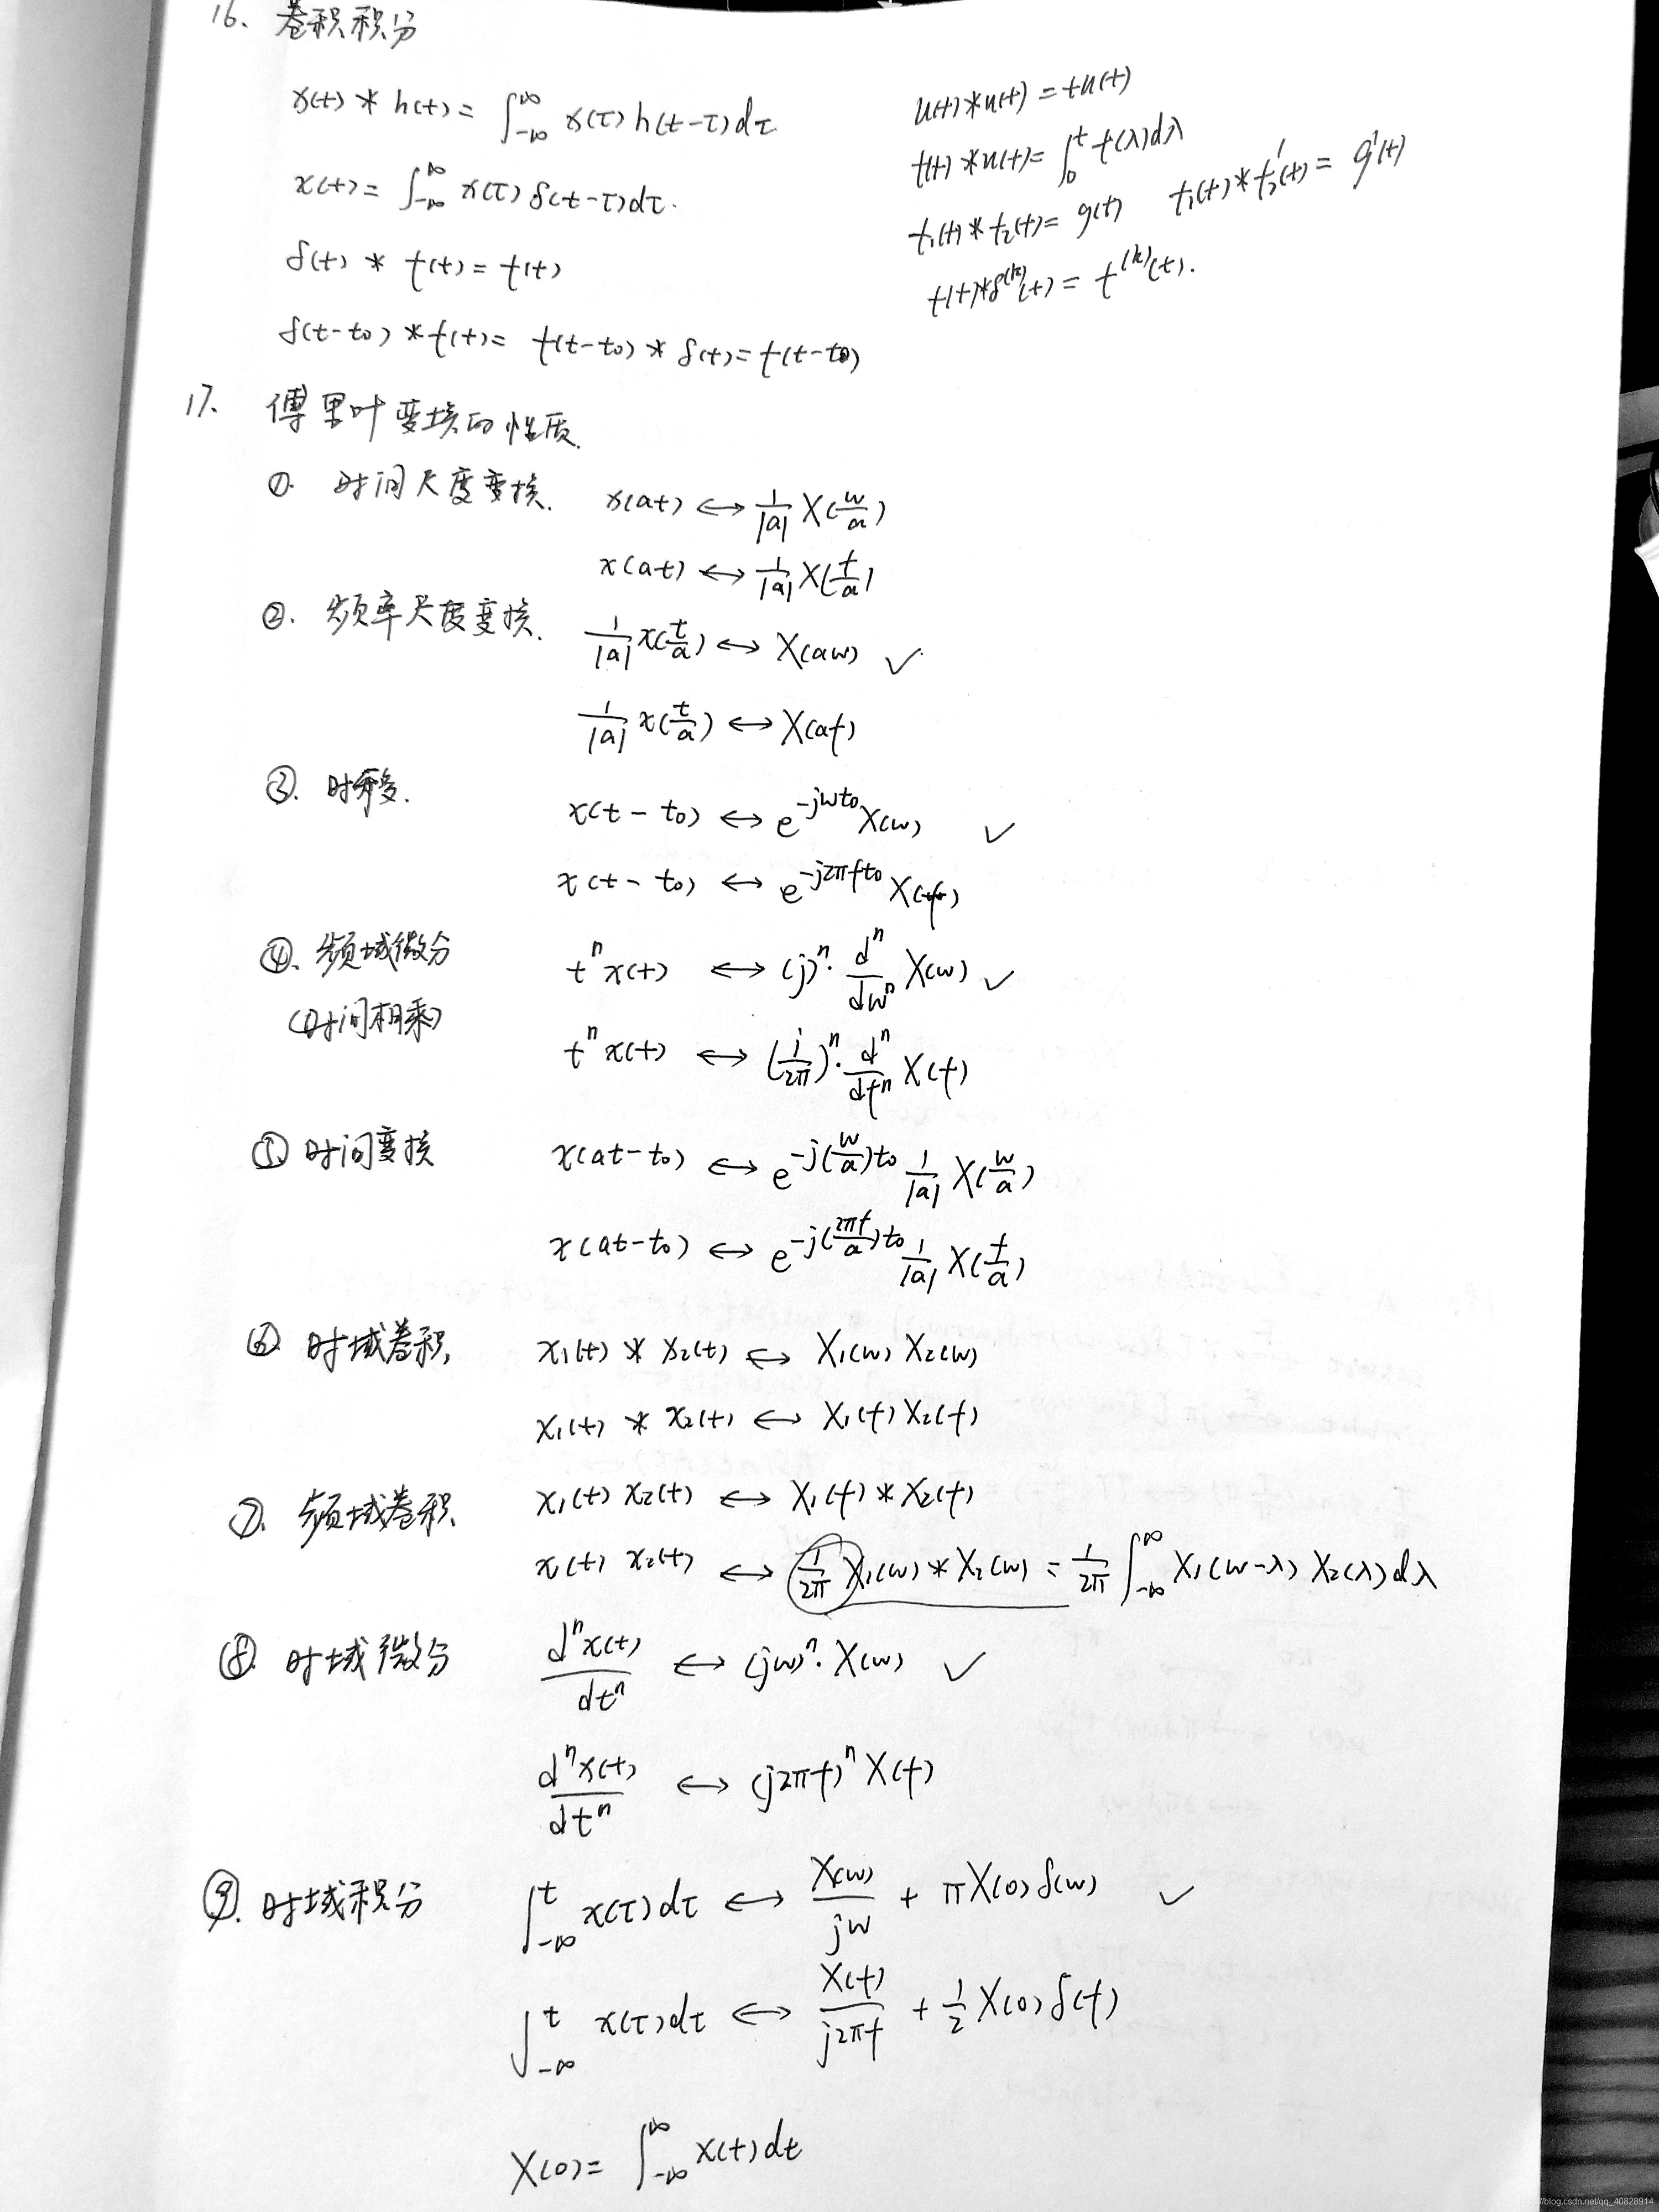 16. 卷积积分
x(t) * h(t) = ∫_{-∞}^{∞} x(τ) h(t-τ)dτ
x(t) = ∫_{-∞}^{∞} x(τ) δ(t-τ)dτ.
δ(t) * f(t) = f(t)
δ(t-t₀) * f(t) = f(t-t₀) * δ(t) = f(t-t₀)
u(t)*u(t) = tu(t)
f(t)*u(t) = ∫_0^t f(λ)dλ
f₁(t)*f₂(t) = g(t) f₁(t)*f₂'(t) = g'(t)
f(t)*δ^{(k)}(t) = f^{(k)}(t).
17. 傅里叶变换的性质.
①. 时间尺度变换. x(at) ↔ 1/|a| X(w/a)
x(at) ↔ 1/|a| X(f/a)
②. 频率尺度变换. 1/|a| x(t/a) ↔ X(aw) ✓
1/|a| x(t/a) ↔ X(af)
③. 时移. x(t-t₀) ↔ e^{-jwt₀} X(w) ✓
x(t-t₀) ↔ e^{-j2πft₀} X(f)
④. 频域微分 tⁿx(t) ↔ (j)ⁿ· dⁿ/dwⁿ X(w) ✓
(时间相乘) tⁿx(t) ↔ (j/2π)ⁿ· dⁿ/dfⁿ X(f)
⑤ 时间变换 x(at-t₀) ↔ e^{-j(w/a)t₀} 1/|a| X(w/a)
x(at-t₀) ↔ e^{-j(2πf/a)t₀} 1/|a| X(f/a)
⑥ 时域卷积, x₁(t) * x₂(t) ↔ X₁(w) X₂(w)
x₁(t) * x₂(t) ↔ X₁(f) X₂(f)
⑦. 频域卷积. x₁(t) x₂(t) ↔ X₁(f) * X₂(f)
x₁(t) x₂(t) ↔ 1/2π X₁(w) * X₂(w) = 1/2π ∫_{-∞}^{∞} X₁(w-λ) X₂(λ)dλ
⑧. 时域微分 dⁿx(t)/dtⁿ ↔ (jw)ⁿ· X(w) ✓
dⁿx(t)/dtⁿ ↔ (j2πf)ⁿ X(f)
⑨. 时域积分 ∫_{-∞}^t x(τ)dτ ↔ X(w)/jw + πX(0)δ(w) ✓
∫_{-∞}^t x(τ)dτ ↔ X(f)/j2πf + 1/2 X(0)δ(f)
X(0) = ∫_{-∞}^{∞} x(t)dt
blog.csdn.net/qq_40828914